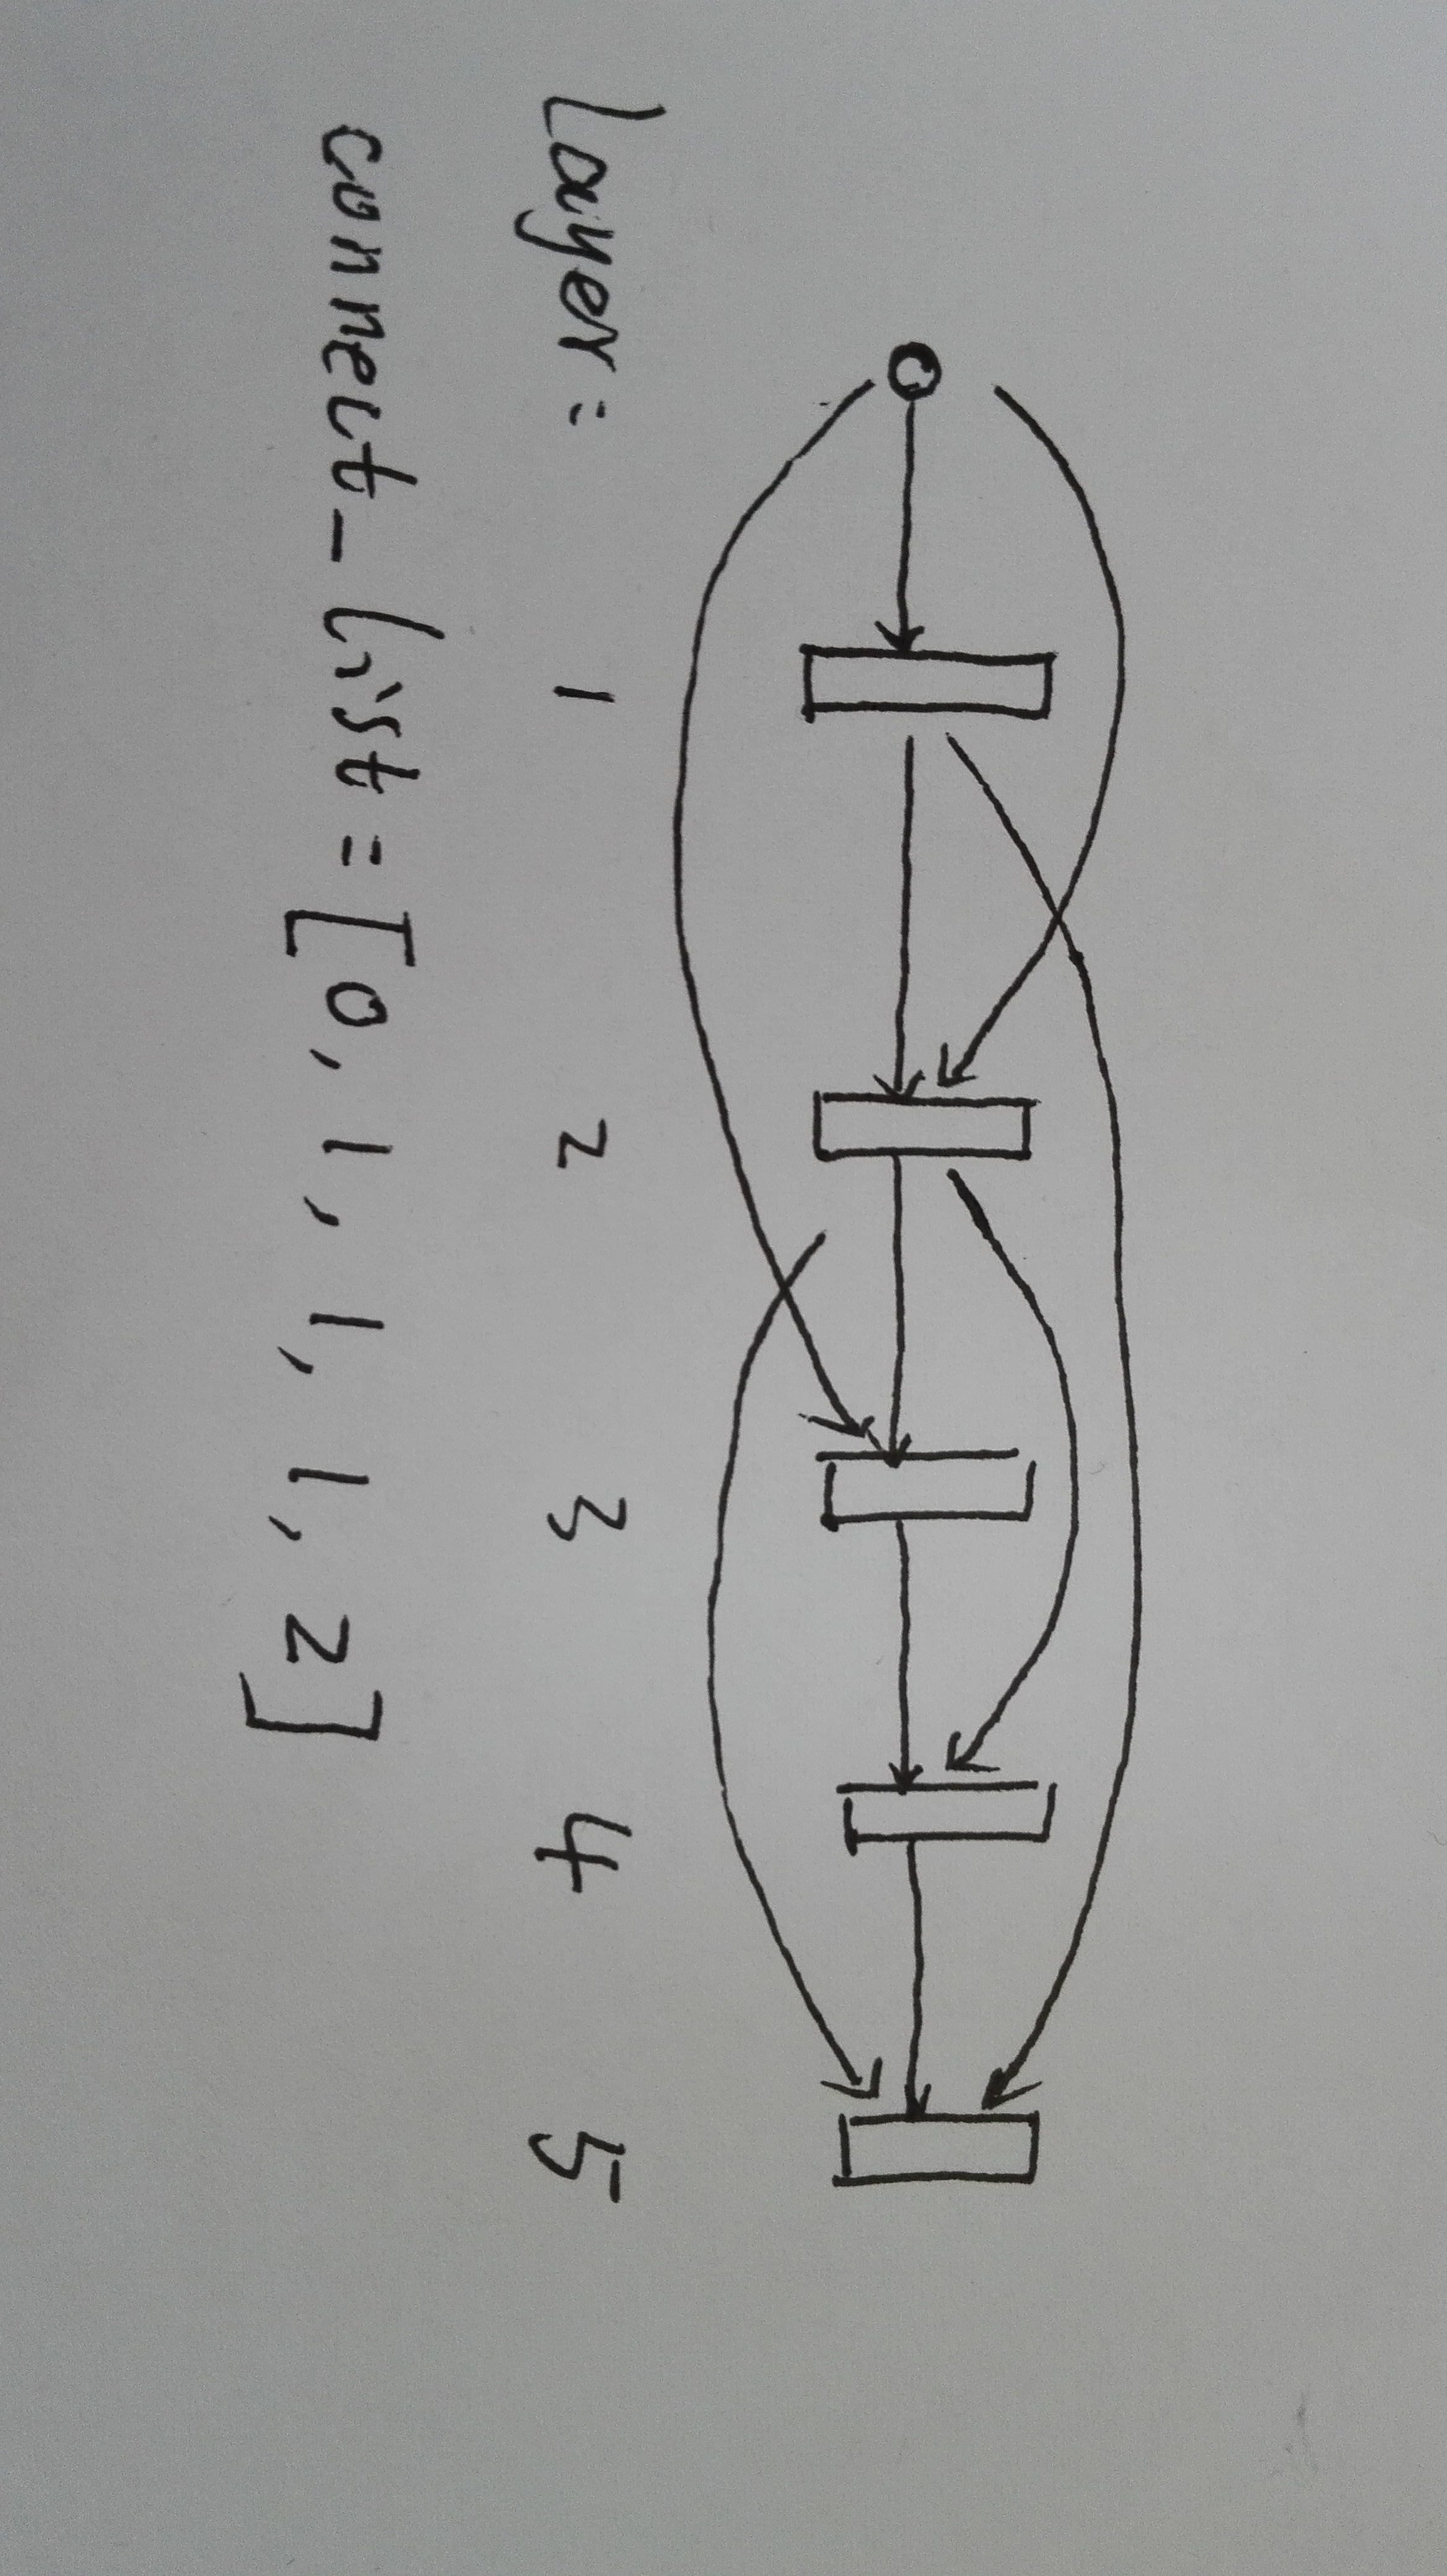 layer : 1 2 3 4 5
connect_list = [0, 1, 1, 1, 2]